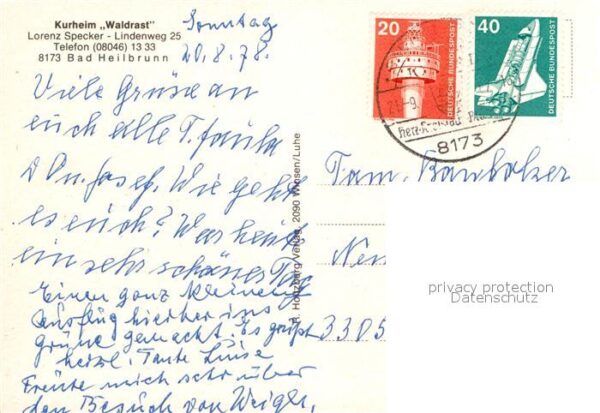 Kurheim „Waldrast"
Lorenz Specker - Lindenweg 25
Telefon (08046) 13 33
8173 Bad Heilbrunn
Sonntag
20.8.78.
Viele Grüße an
euch alle T. Paula
Josef. Wie geht
es euch? War heute
ein sehr schöner Tag
Einen ganz kleinen
Ausflug hierher ins
Grüne gemacht. Es grüßt
herzl. Tante Luise
Freute mich sehr über
den Besuch von Weigl,
20
DEUTSCHE BUNDESPOST
40
DEUTSCHE BUNDESPOST
8173
Fam.
3305
privacy protection
Datenschutz